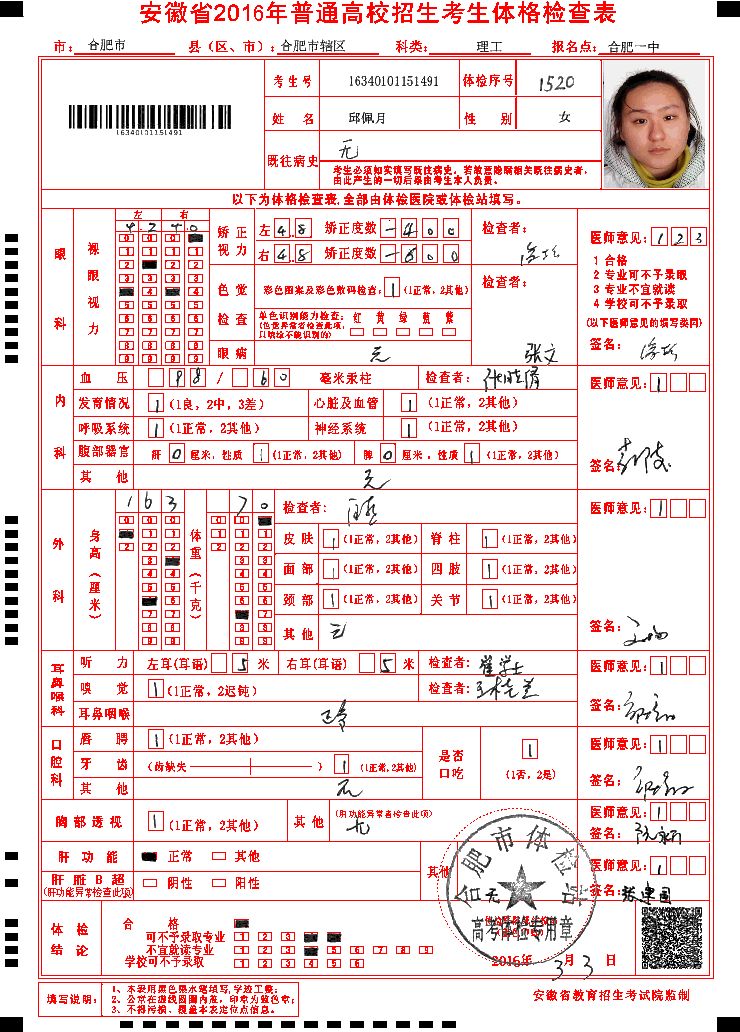 安徽省2016年普通高校招生考生体格检查表
市： 合肥市 县（区、市）： 合肥市辖区 科类： 理工 报名点： 合肥一中
16340101151491
考生号 16340101151491 体检序号 1520
姓名 邱佩月 性别 女
既往病史 无
考生必须如实填写既往病史。若故意隐瞒相关既往病史者，
由此产生的一切后果由考生本人负责。
以下为体格检查表，全部由体检医院或体检站填写。
眼科
裸眼视力 左 右
4.2 4.0
矫正视力
左 4.8 矫正度数 -400
右 4.8 矫正度数 -600
检查者：
色觉检查
彩色图案及彩色数码检查： 1 (1正常，2其他)
单色识别能力检查：
(色觉异常者检查此项，
只填涂不能识别的)
红 黄 绿 蓝 紫
检查者：
张文
眼病 无
医师意见： 1 2 3
1 合格
2 专业可不予录取
3 专业不宜就读
4 学校可不予录取
(以下医师意见的填写类同)
签名：
内科
血压 98 / 60 毫米汞柱 检查者：
医师意见： 1
发育情况 1 (1良，2中，3差) 心脏及血管 1 (1正常，2其他)
呼吸系统 1 (1正常，2其他) 神经系统 1 (1正常，2其他)
腹部器官 肝 0 厘米，性质 1 (1正常，2其他) 脾 0 厘米，性质 1 (1正常，2其他)
签名：
其他 无
外科
身高（厘米） 163
体重（千克） 70
检查者：
医师意见： 1
皮肤 1 (1正常，2其他) 脊柱 1 (1正常，2其他)
面部 1 (1正常，2其他) 四肢 1 (1正常，2其他)
颈部 1 (1正常，2其他) 关节 1 (1正常，2其他)
其他 无
签名：
耳鼻喉科
听力 左耳(耳语) 5 米 右耳(耳语) 5 米 检查者：
医师意见： 1
嗅觉 1 (1正常，2迟钝) 检查者：
耳鼻咽喉 正常
签名：
口腔科
唇腭 1 (1正常，2其他)
是否口吃 1 (1否，2是)
医师意见： 1
牙齿 (齿缺失 ) 1 (1正常，2其他)
其他 无
签名：
胸部透视 1 (1正常，2其他) 其他 (肝功能异常者检查此项)
无
医师意见： 1
签名：
肝功能 正常 其他
肝脏B超 阴性 阳性
(肝功能异常检查此项)
其他 无
医师意见： 1
签名： 张建国
合肥市体检站
高考体检专用章
体检结论
合格
可不予录取专业 1 2 3
不宜就读专业 1 2 3 5 6 7 8 9
学校可不予录取 1 2 3 4 5 6
2016年 3月 3日
填写说明：
1、本表用黑色墨水笔填写，字迹工整；
2、公章在虚线圆圈内盖，印章为蓝色章；
3、不得污损、覆盖本表定位点信息。
安徽省教育招生考试院监制